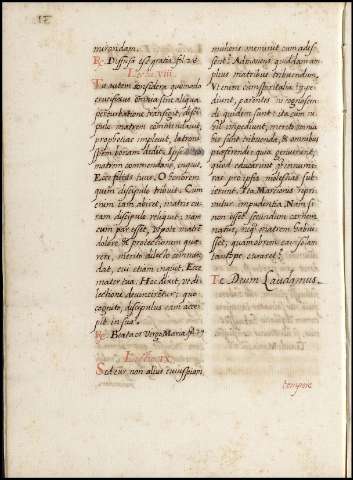 mirandam.
Re. Diffusa est gratia. fil. 26
Lectio viii.
Tu autem considera quomodo
crucifixus omnia sine aliqua
perturbatione transigit, disci-
pulo matrem commendavit,
prophetias implevit, latroni
spem bonam dedit.
matrem commendans, inquit,
Ecce filius tuus. O honorem
quem discipulo tribuit. Cum
enim iam abiret, matris cu-
ram discipulo reliquit; nam
cum par esset, utpote matrē
dolore & protectionem quę
rere, merito dilecto commen-
dat, cui etiam inquit, Ecce
mater tua. Hoc dixit, ut di-
lectione devincirentur; quo
cognito, discipulus eam acce-
pit in sua.
Re. Beata es Virgo Maria. fil. 27
Lectio ix.
Sed cūr non alius cuiuspiam
mulieris meminit cum adis-
sent? Admonens quiddam am-
plius matribus tribuendum.
Ut enim cum spiritalia impe-
diunt, parentes ne cognoscen-
di quidem sunt: ita cum ni-
hil impediunt, merito omnia
eis sunt tribuenda, & omnibus
preferendi: quia genuerunt,
quod educarint, quod innume-
ras pro ipsis molestias sub-
ierint. Ita Marcionis repri-
mitur impudentia. Nam si
non esset secundum carnem
natus, neque matrem habuis-
set, quamobrem eius solam
tantopere curasset?
Te Deum Laudamus.